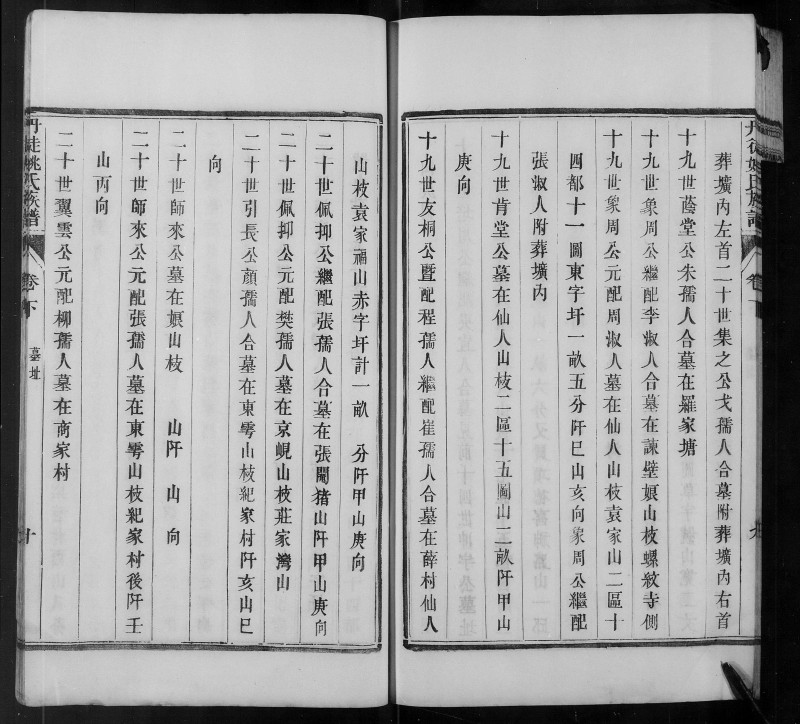 葬壙內左首二十世集之公戈孺人合墓附葬壙內右首
十九世蔭堂公朱孺人合墓在羅家塘
十九世象周公繼配李淑人合墓在諫壁娘山枝螺紋寺側
十九世象周公元配周淑人墓在仙人山枝袁家山二區十
四都十一圖東字圩一畝五分阡巳山亥向象周公繼配
張淑人附葬壙內
十九世肯堂公墓在仙人山枝二區十五圖山二畝阡甲山
庚向
十九世友桐公暨配程孺人繼配崔孺人合墓在薛村仙人
山枝袁家福山赤字圩計一畝 分阡甲山庚向
二十世佩抑公繼配張孺人合墓在張閘猪山阡甲山庚向
二十世佩抑公元配樊孺人墓在京峴山枝莊家灣山
二十世引長公顏孺人合墓在東彎山枝紀家村阡亥山巳
向
二十世師來公墓在娘山枝 山阡 山 向
二十世師來公元配張孺人墓在東彎山枝紀家村後阡壬
山丙向
二十世翼雲公元配柳孺人墓在商家村
丹徒姚氏族譜 卷下 墓址 十